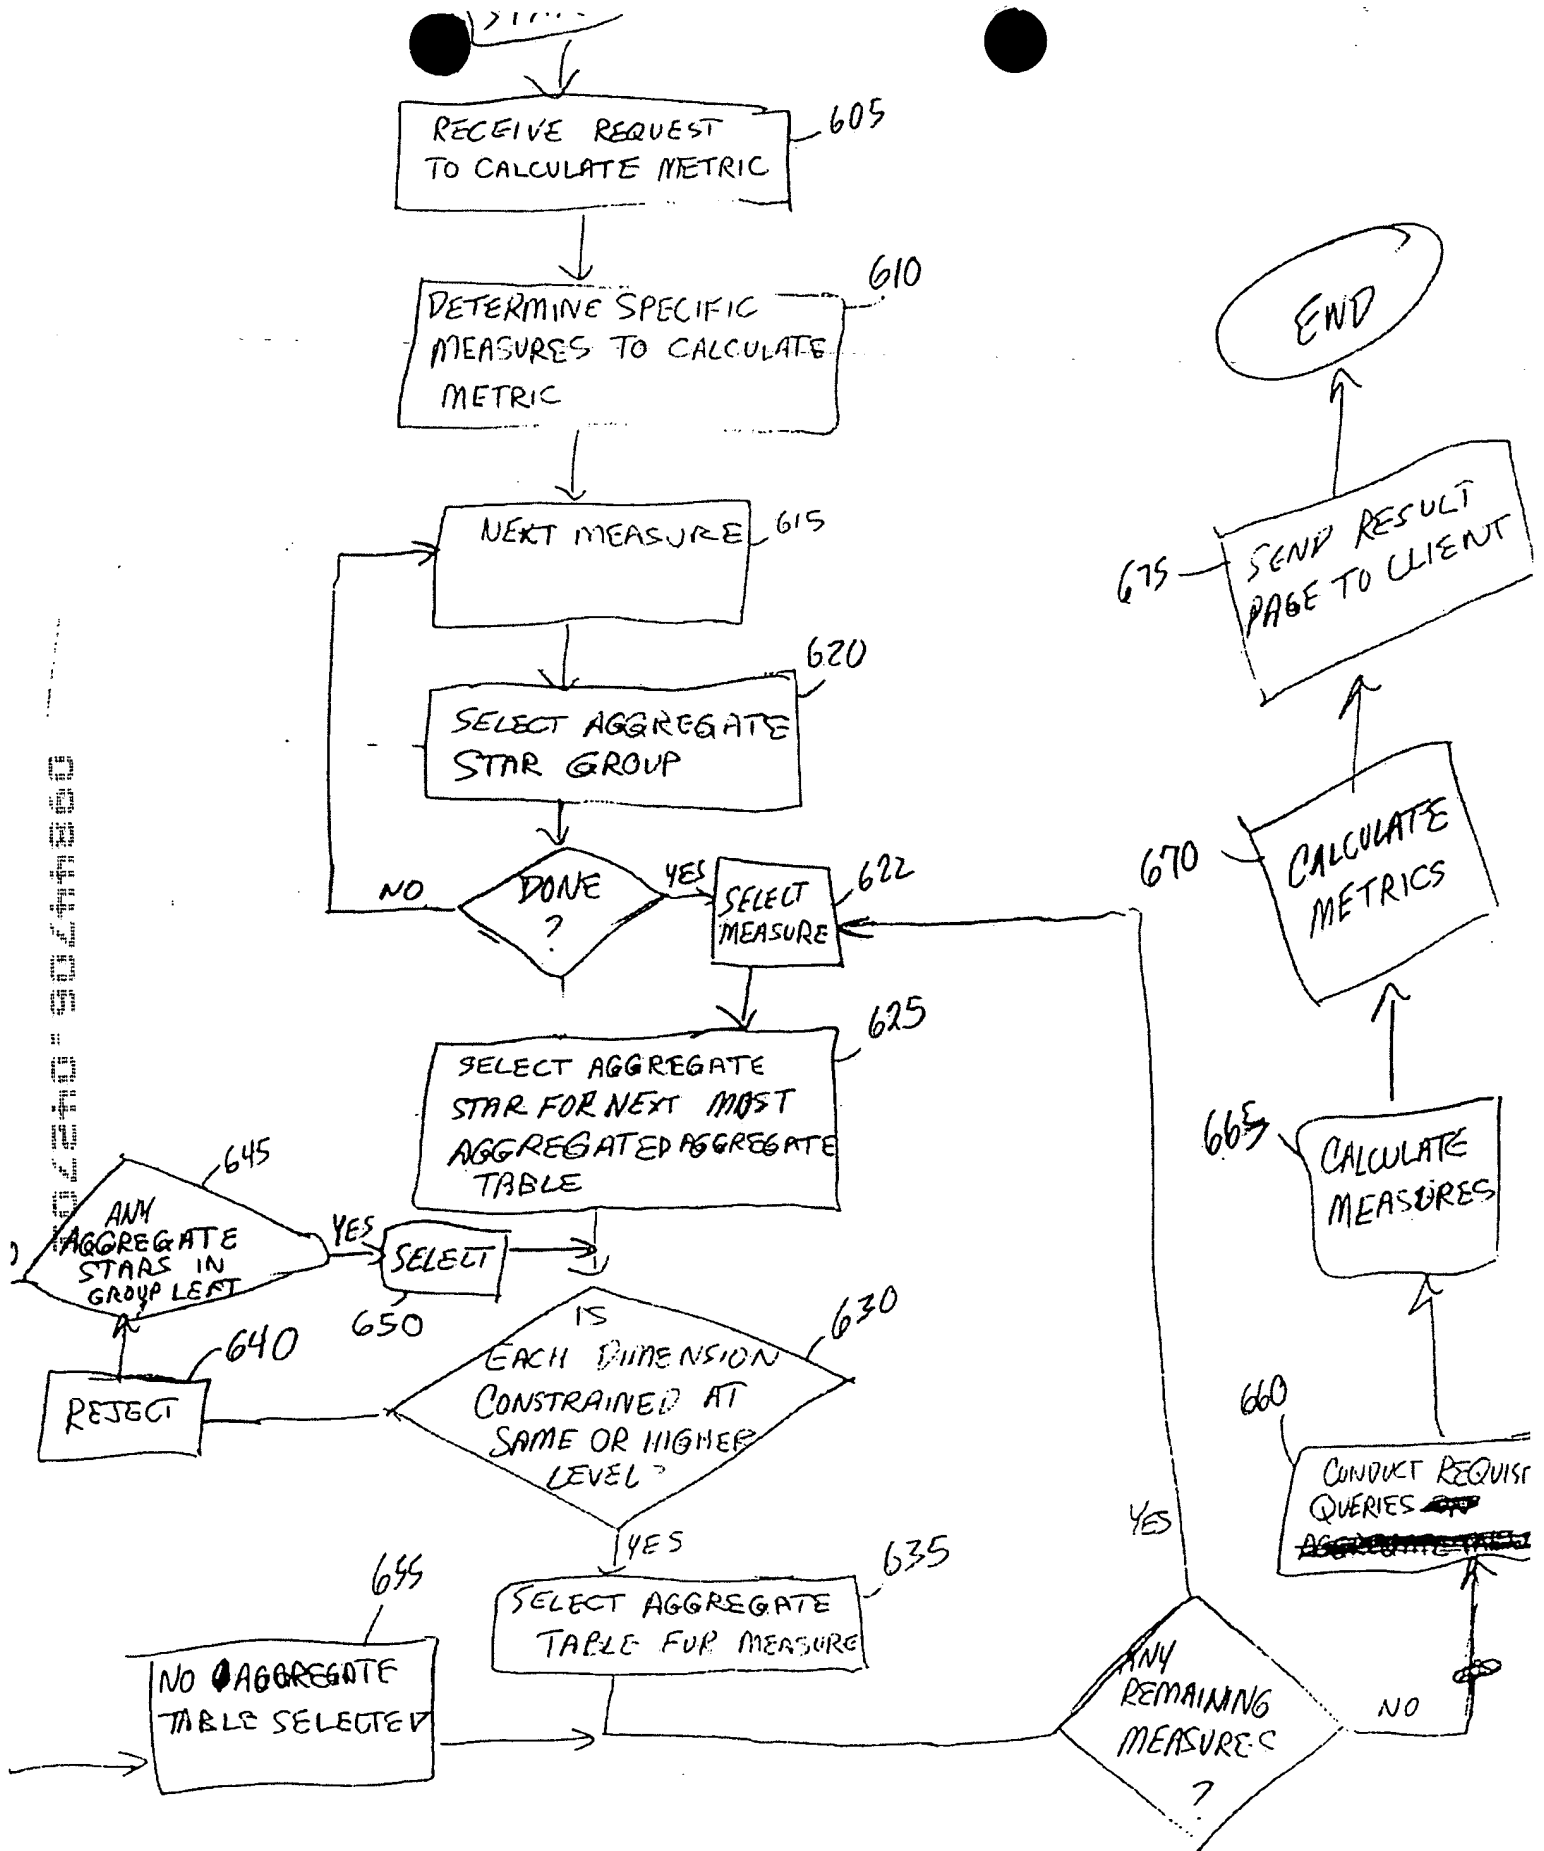 605
RECEIVE REQUEST
TO CALCULATE METRIC
610
DETERMINE SPECIFIC
MEASURES TO CALCULATE
METRIC
NEXT MEASURE
615
620
SELECT AGGREGATE
STAR GROUP
DONE
?
NO
YES
SELECT
MEASURE
622
625
SELECT AGGREGATE
STAR FOR NEXT MOST
AGGREGATED AGGREGATE
TABLE
645
ANY
AGGREGATE
STARS IN
GROUP LEFT
YES
SELECT
650
630
IS
EACH DIMENSION
CONSTRAINED AT
SAME OR HIGHER
LEVEL?
640
REJECT
YES
635
SELECT AGGREGATE
TABLE FOR MEASURE
655
NO AGGREGATE
TABLE SELECTED
YES
ANY
REMAINING
MEASURES
?
NO
660
CONDUCT
QUERIES
665
CALCULATE
MEASURES
670
CALCULATE
METRICS
675
SEND RESULT
PAGE TO CLIENT
END